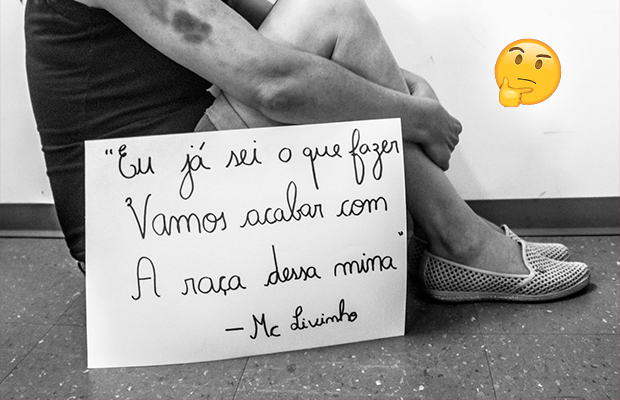 "Eu já sei o que fazer
Vamos acabar com
A raça dessa mina"
— Mc Livinho